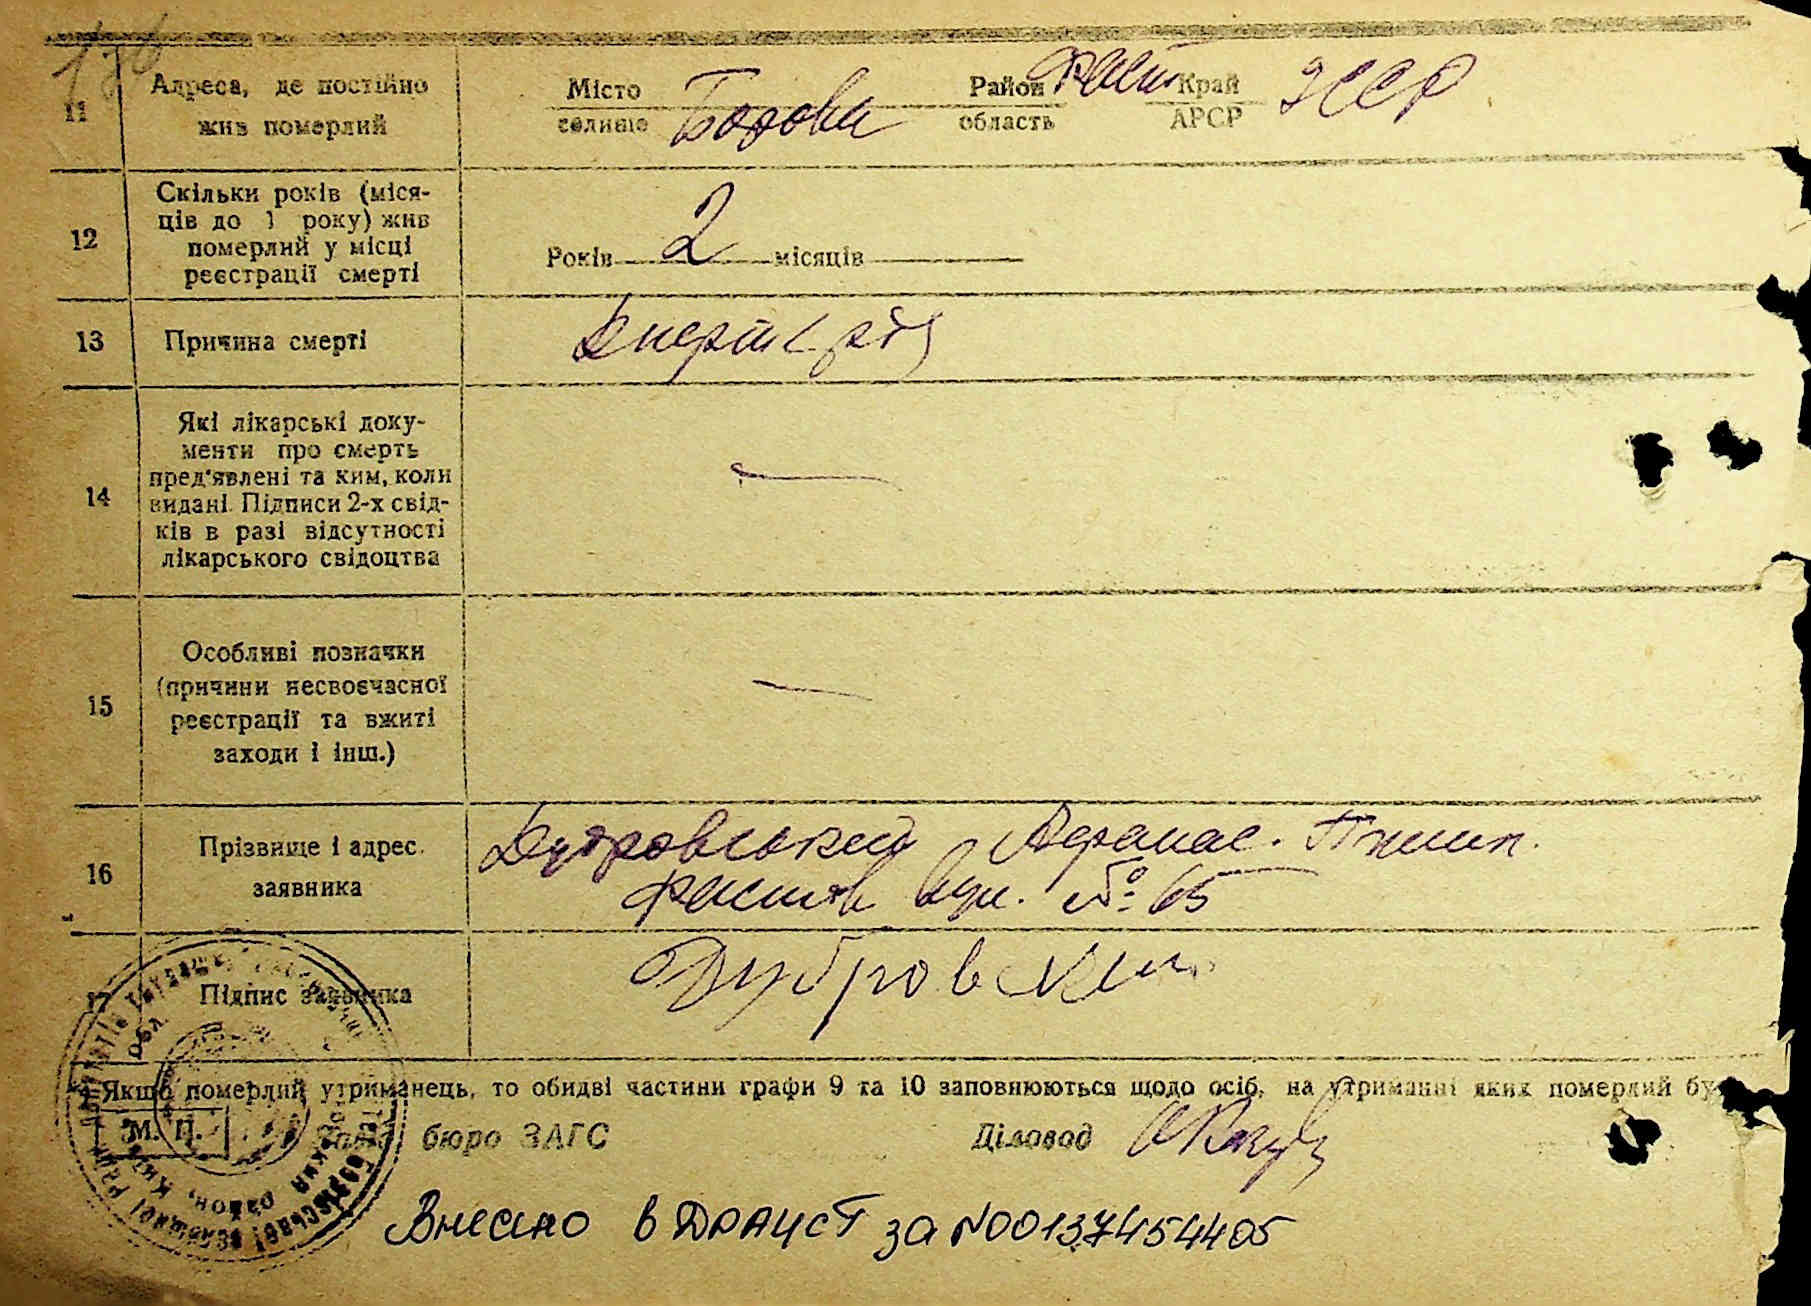 11 Адреса, де постійно жив померлий
Місто селище Борова Район область Фаст Край АРСР УССР
12 Скільки років (міся-
ців до 1 року) жив
померлий у місці
реєстрації смерті
Років 2 місяців
13 Причина смерті
14 Які лікарські доку-
менти про смерть
пред'явлені та ким, коли
видані. Підписи 2-х свід-
ків в разі відсутності
лікарського свідоцтва
15 Особливі позначки
(причини несвоєчасної
реєстрації та вжиті
заходи і інш.)
16 Прізвище і адрес.
заявника
Дубровський Афанас.
Фастів вул. № 65
17 Підпис заявника
Дубровский
Якщо померлий утриманець, то обидві частини графи 9 та 10 заповнюються щодо осіб, на утриманні яких померлий бу
М. П. бюро ЗАГС Діловод
Внесено в ДРАЦСТ за №00137454405